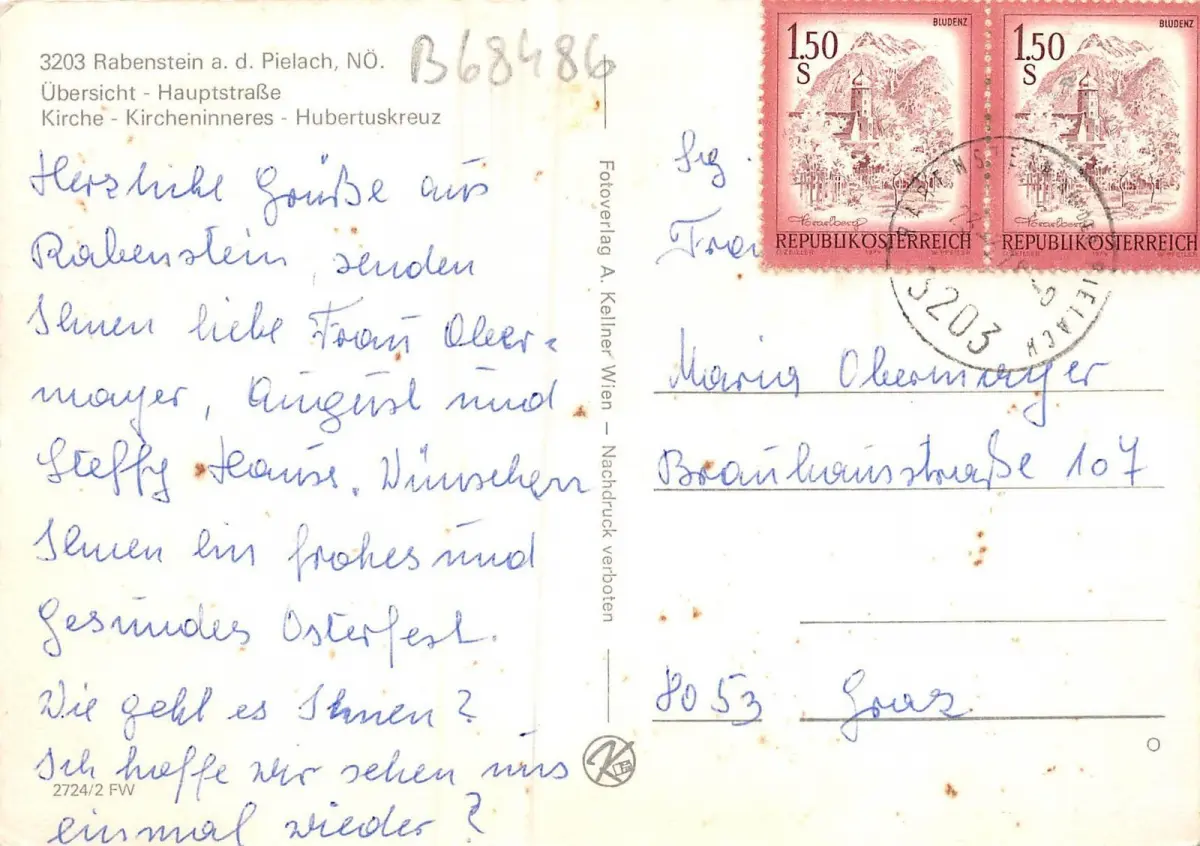 3203 Rabenstein a. d. Pielach, NÖ.
Übersicht - Hauptstraße
Kirche - Kircheninneres - Hubertuskreuz
B68486
Herzliche Grüße aus
Rabenstein, senden
Ihnen liebe Frau Ober-
mayer, August und
Steffy Hauss. Wünschen
Ihnen ein frohes und
Gesundes Osterfest.
Wie geht es Ihnen?
Ich hoffe wir sehen uns
einmal wieder?
2724/2 FW
Fotoverlag A. Kellner Wien — Nachdruck verboten
K
BLUDENZ
1.50
S
Vorarlberg
REPUBLIK ÖSTERREICH
O.ZEILLER 1974 W.PFEILER
BLUDENZ
1.50
S
Vorarlberg
REPUBLIK ÖSTERREICH
O.ZEILLER 1974 W.PFEILER
RABENSTEIN PIELACH
3203
Frau
Maria Obermayer
Brauhausstraße 107
8053 Graz